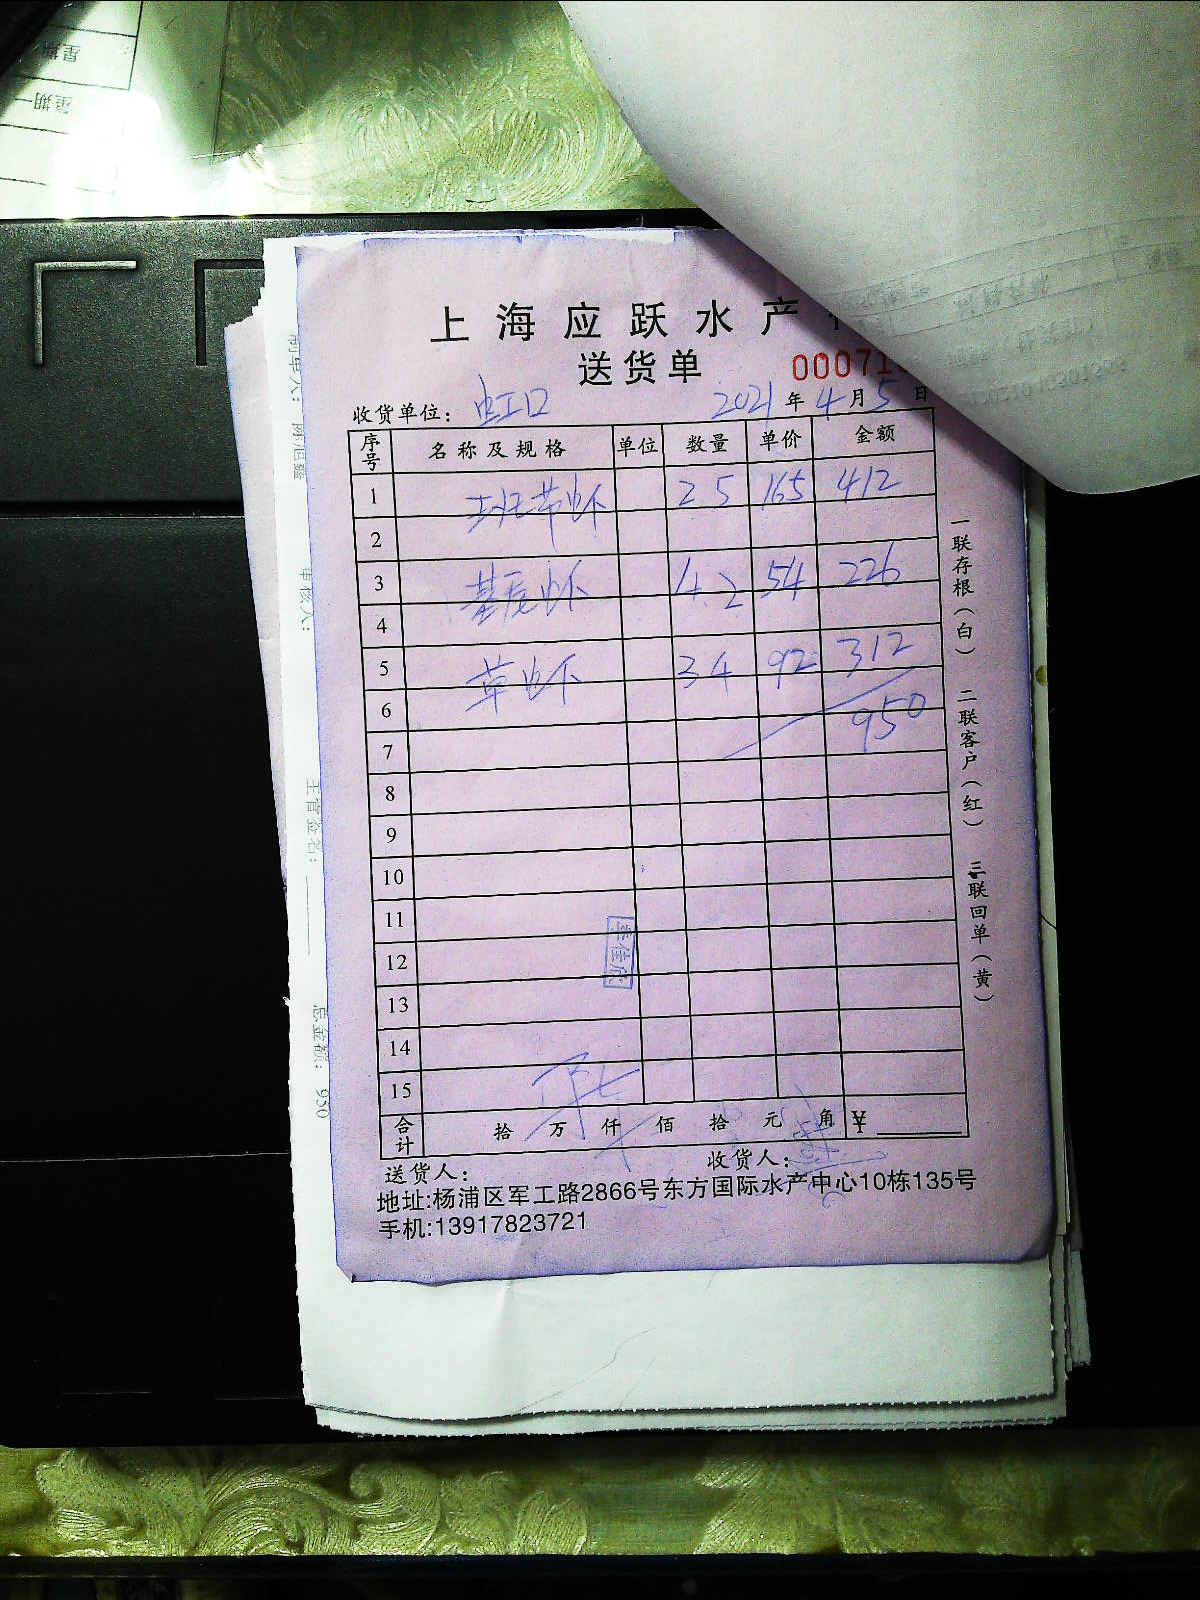 星期一
上海应跃水产
送货单 00071
收货单位: 虹口 2021年4月5日
序号 名称及规格 单位 数量 单价 金额
1 斑节虾 25 165 412
2
3 基尾虾 4.2 54 226
4
5 草虾 34 92 312
6 950
7
8
9
10
11
12
13
14
15
合计 拾 万 仟 佰 拾 元 角 ¥
送货人: 收货人:
地址:杨浦区军工路2866号东方国际水产中心10栋135号
手机:13917823721
一联存根(白) 二联客户(红) 三联回单(黄)
审核人:
主管签名:
总金额: 950